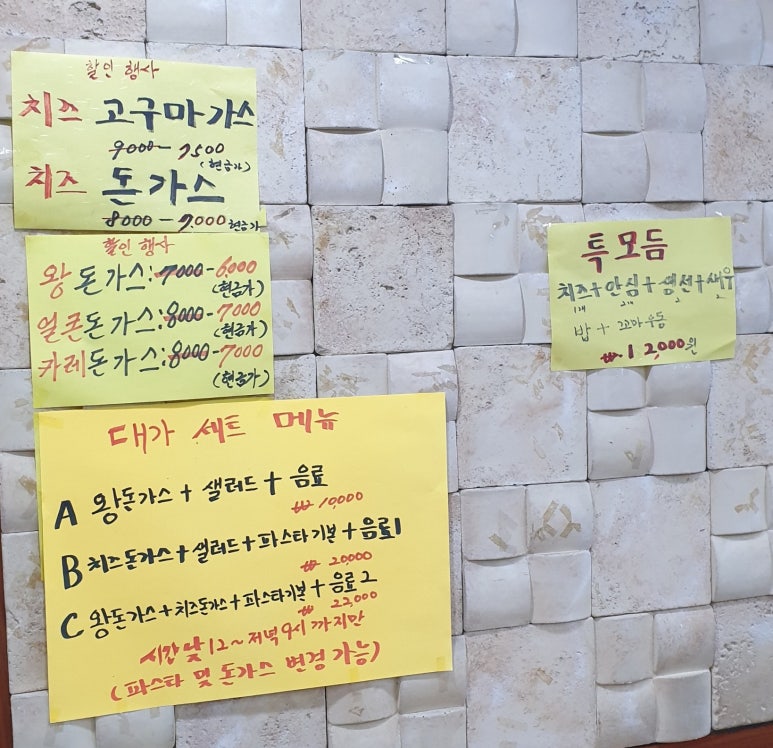 할인 행사
치즈 고구마가스
9000 - 7500
(현금가)
치즈 돈가스
8000 - 7.000 현금가
할인 행사
왕돈가스:7000-6000
(현금가)
얼큰돈가스:8000-7000
(현금가)
카레돈가스:8000-7000
(현금가)
대가 세트 메뉴
A 왕돈가스 + 샐러드 + 음료
₩ 10,000
B 치즈돈가스 + 샐러드 + 파스타기본 + 음료1
₩ 20,000
C 왕돈가스 + 치즈돈가스 + 파스타기본 + 음료2
₩ 22,000
시간 낮 12 ~ 저녁 9시 까지만
(파스타 및 돈가스 변경 가능)
특모듬
치즈+안심+생선+새우
밥 + 꼬마우동
₩ 12,000원